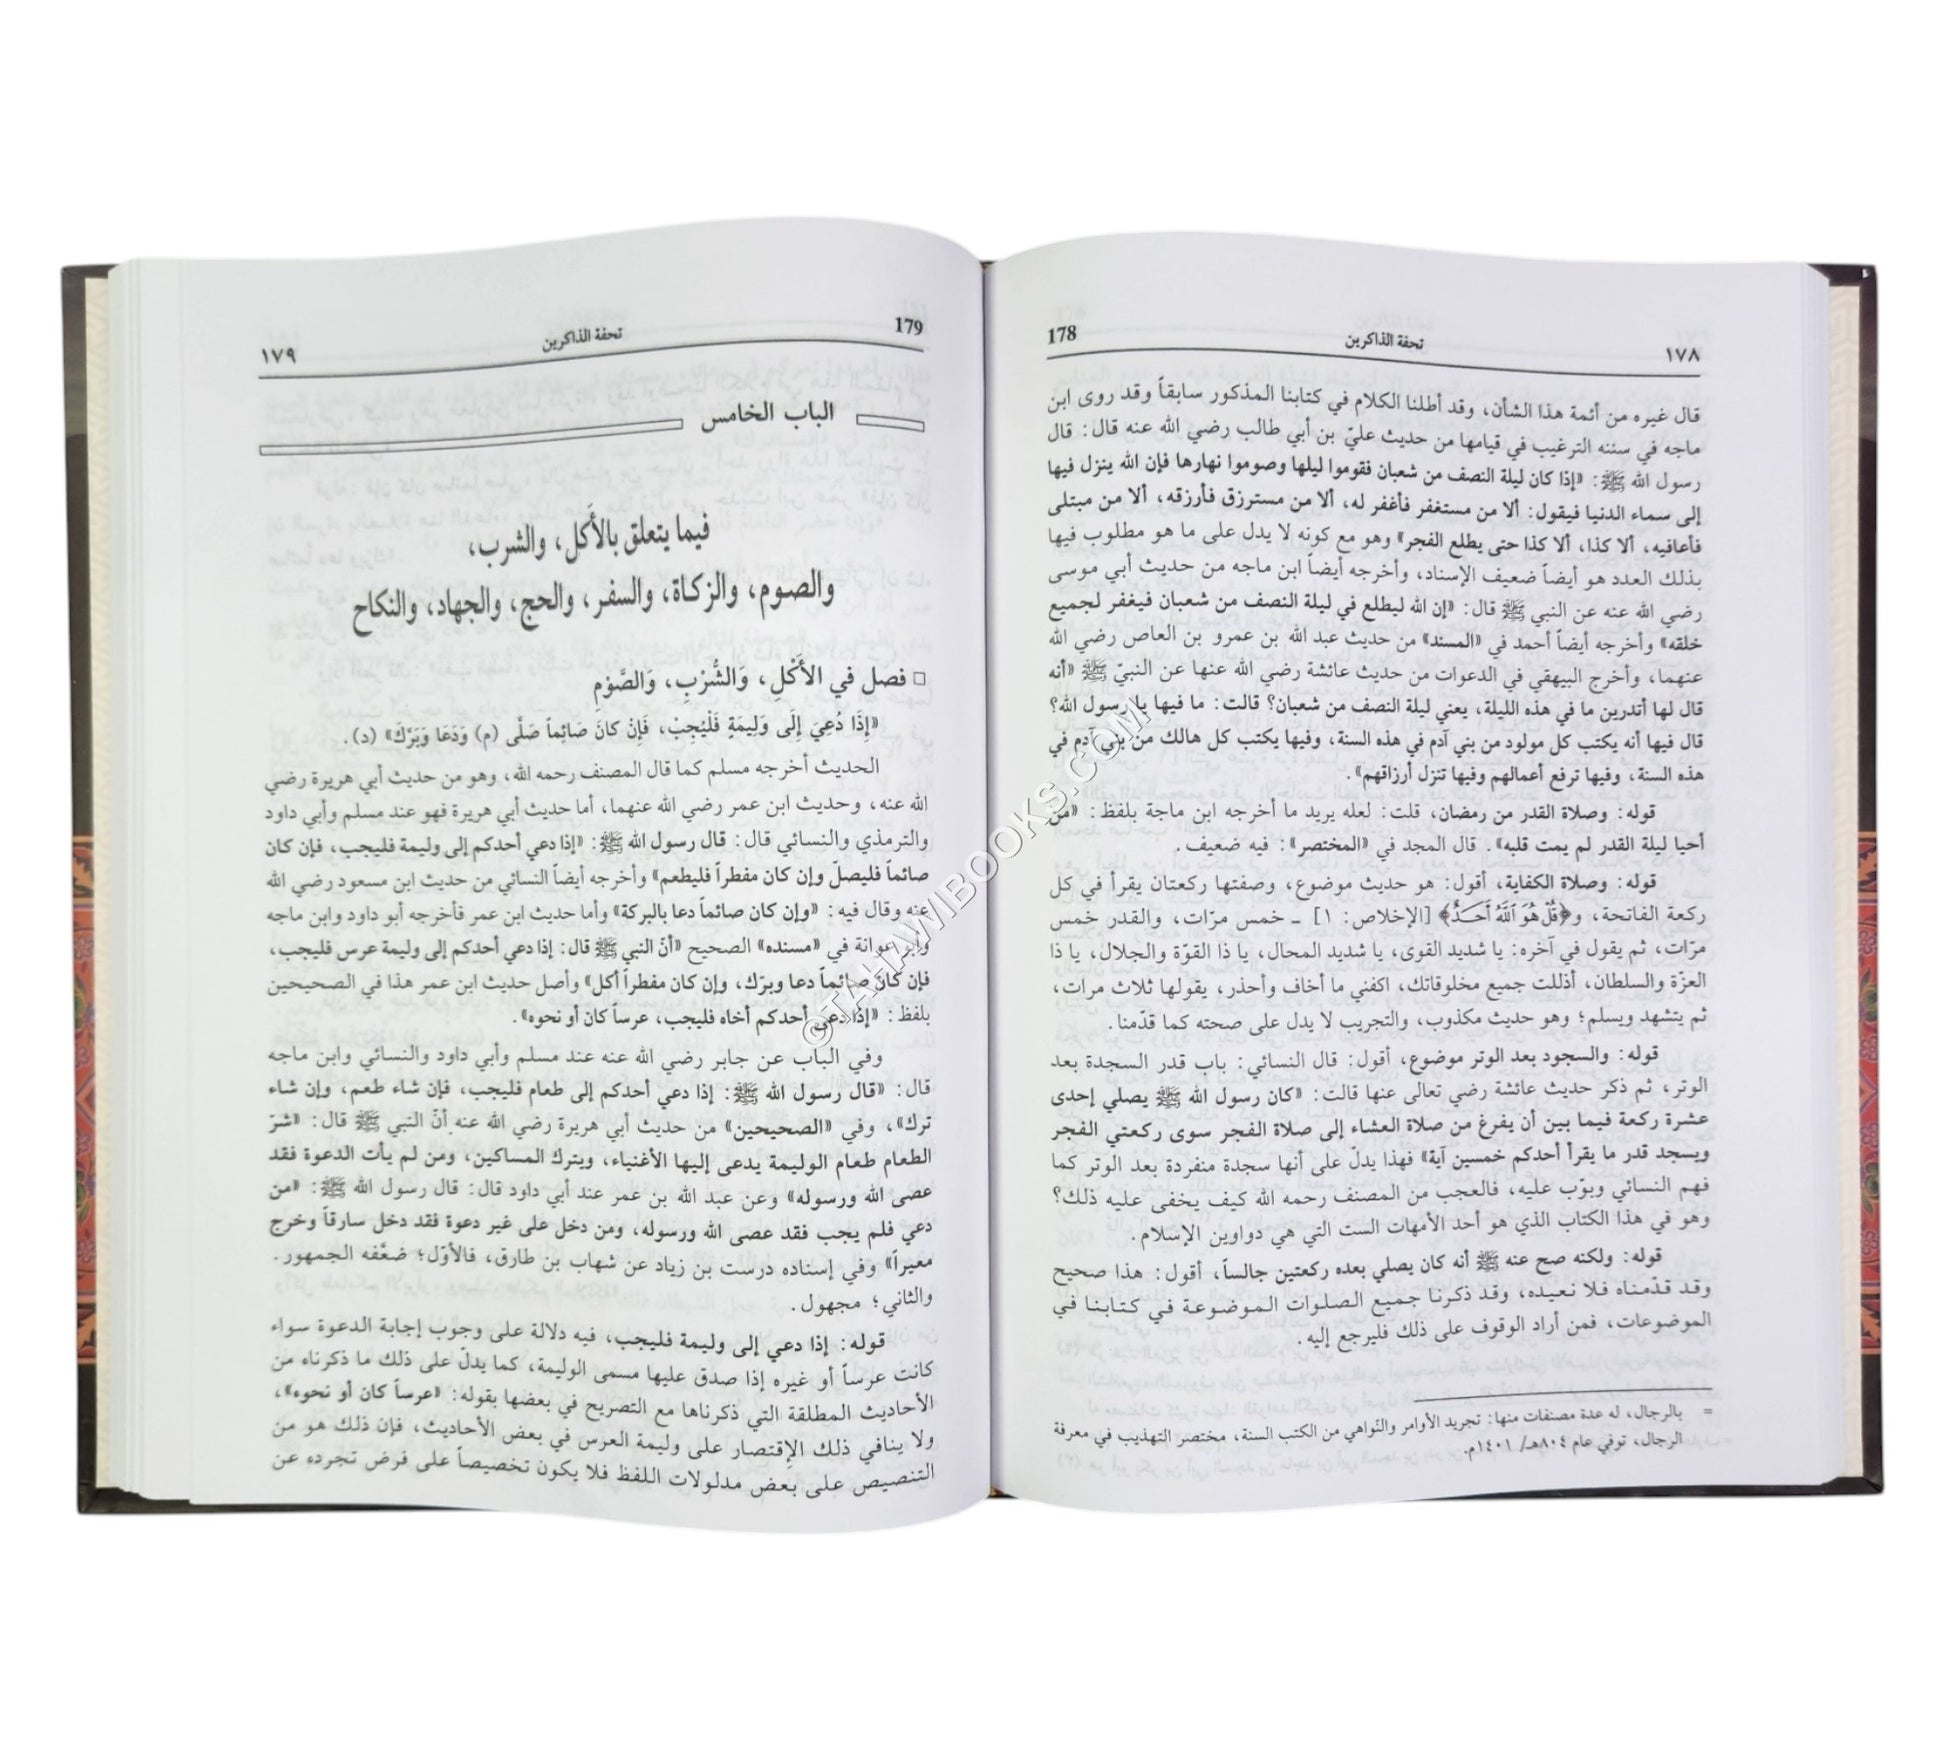 178 تحفة الذاكرين ١٧٨
قال غيره من أئمة هذا الشأن، وقد أطلنا الكلام في كتابنا المذكور سابقاً وقد روى ابن
ماجه في سننه الترغيب في قيامها من حديث عليّ بن أبي طالب رضي الله عنه قال: قال
رسول الله ﷺ: «إذا كان ليلة النصف من شعبان فقوموا ليلها وصوموا نهارها فإن الله ينزل فيها
إلى سماء الدنيا فيقول: ألا من مستغفر فأغفر له، ألا من مسترزق فأرزقه، ألا من مبتلى
فأعافيه، ألا كذا، ألا كذا حتى يطلع الفجر» وهو مع كونه لا يدل على ما هو مطلوب فيها
بذلك العدد هو أيضاً ضعيف الإسناد، وأخرجه أيضاً ابن ماجه من حديث أبي موسى
رضي الله عنه عن النبي ﷺ قال: «إن الله ليطلع في ليلة النصف من شعبان فيغفر لجميع
خلقه» وأخرجه أيضاً أحمد في «المسند» من حديث عبد الله بن عمرو بن العاص رضي الله
عنهما، وأخرج البيهقي في الدعوات من حديث عائشة رضي الله عنها عن النبيّ ﷺ «أنه
قال لها أتدرين ما في هذه الليلة، يعني ليلة النصف من شعبان؟ قالت: ما فيها يا رسول الله؟
قال فيها أنه يكتب كل مولود من بني آدم في هذه السنة، وفيها يكتب كل هالك من بني آدم في
هذه السنة، وفيها ترفع أعمالهم وفيها تنزل أرزاقهم».
قوله: وصلاة القدر من رمضان، قلت: لعله يريد ما أخرجه ابن ماجة بلفظ: «من
أحيا ليلة القدر لم يمت قلبه». قال المجد في «المختصر»: فيه ضعيف.
قوله: وصلاة الكفاية، أقول: هو حديث موضوع، وصفتها ركعتان يقرأ في كل
ركعة الفاتحة، و﴿قُلْ هُوَ اللَّهُ أَحَدٌ﴾ [الإخلاص: ١] ـ خمس مرّات، والقدر خمس
مرّات، ثم يقول في آخره: يا شديد القوى، يا شديد المحال، يا ذا القوّة والجلال، يا ذا
العزّة والسلطان، أذللت جميع مخلوقاتك، اكفني ما أخاف وأحذر، يقولها ثلاث مرات،
ثم يتشهد ويسلم؛ وهو حديث مكذوب، والتجريب لا يدل على صحته كما قدّمنا.
قوله: والسجود بعد الوتر موضوع، أقول: قال النسائي: باب قدر السجدة بعد
الوتر، ثم ذكر حديث عائشة رضي الله تعالى عنها قالت: «كان رسول الله ﷺ يصلي إحدى
عشرة ركعة فيما بين أن يفرغ من صلاة العشاء إلى صلاة الفجر سوى ركعتي الفجر
ويسجد قدر ما يقرأ أحدكم خمسين آية» فهذا يدلّ على أنها سجدة منفردة بعد الوتر كما
فهم النسائي وبوّب عليه، فالعجب من المصنف رحمه الله كيف يخفى عليه ذلك؟
وهو في هذا الكتاب الذي هو أحد الأمهات الست التي هي دواوين الإسلام.
قوله: ولكنه صح عنه ﷺ أنه كان يصلي بعده ركعتين جالساً، أقول: هذا صحيح
وقد قدّمناه فلا نعيده، وقد ذكرنا جميع الصلوات الموضوعة في كتابنا في
الموضوعات، فمن أراد الوقوف على ذلك فليرجع إليه.
= بالرجال، له عدة مصنفات منها: تجريد الأوامر والنّواهي من الكتب الستة، مختصر التهذيب في معرفة
الرجال، توفي عام ٨٠٤هـ/ ١٤٠١م.
179 تحفة الذاكرين ١٧٩
الباب الخامس
فيما يتعلق بالأكل، والشرب،
والصوم، والزكاة، والسفر، والحج، والجهاد، والنكاح
□ فصل في الأَكْلِ، وَالشُّرْبِ، وَالصَّوْمِ
«إِذَا دُعِيَ إِلَى وَلِيمَةٍ فَلْيُجِبْ، فَإِنْ كانَ صَائِماً صَلَّى (م) وَدَعَا وَبَرَّكَ» (د).
الحديث أخرجه مسلم كما قال المصنف رحمه الله، وهو من حديث أبي هريرة رضي
الله عنه، وحديث ابن عمر رضي الله عنهما، أما حديث أبي هريرة فهو عند مسلم وأبي داود
والترمذي والنسائي قال: قال رسول الله ﷺ: «إذا دعي أحدكم إلى وليمة فليجب، فإن كان
صائماً فليصلّ وإن كان مفطراً فليطعم» وأخرجه أيضاً النسائي من حديث ابن مسعود رضي الله
عنه وقال فيه: «وإن كان صائماً دعا بالبركة» وأما حديث ابن عمر فأخرجه أبو داود وابن ماجه
وأبو عوانة في «مسنده» الصحيح «أنّ النبي ﷺ قال: إذا دعي أحدكم إلى وليمة عرس فليجب،
فإن كان صائماً دعا وبرّك، وإن كان مفطراً أكل» وأصل حديث ابن عمر هذا في الصحيحين
بلفظ: «إذا دعي أحدكم أخاه فليجب، عرساً كان أو نحوه».
وفي الباب عن جابر رضي الله عنه عند مسلم وأبي داود والنسائي وابن ماجه
قال: «قال رسول الله ﷺ: إذا دعي أحدكم إلى طعام فليجب، فإن شاء طعم، وإن شاء
ترك»، وفي «الصحيحين» من حديث أبي هريرة رضي الله عنه أنّ النبي ﷺ قال: «شرّ
الطعام طعام الوليمة يدعى إليها الأغنياء، ويترك المساكين، ومن لم يأت الدعوة فقد
عصى الله ورسوله» وعن عبد الله بن عمر عند أبي داود قال: قال رسول الله ﷺ: «من
دعي فلم يجب فقد عصى الله ورسوله، ومن دخل على غير دعوة فقد دخل سارقاً وخرج
معيراً» وفي إسناده درست بن زياد عن شهاب بن طارق، فالأوّل؛ ضعّفه الجمهور.
والثاني؛ مجهول.
قوله: إذا دعي إلى وليمة فليجب، فيه دلالة على وجوب إجابة الدعوة سواء
كانت عرساً أو غيره إذا صدق عليها مسمى الوليمة، كما يدلّ على ذلك ما ذكرناه من
الأحاديث المطلقة التي ذكرناها مع التصريح في بعضها بقوله: «عرساً كان أو نحوه»،
ولا ينافي ذلك الإقتصار على وليمة العرس في بعض الأحاديث، فإن ذلك هو من
التنصيص على بعض مدلولات اللفظ فلا يكون تخصيصاً على فرض تجرده عن
©TAHAWIBOOKS.COM